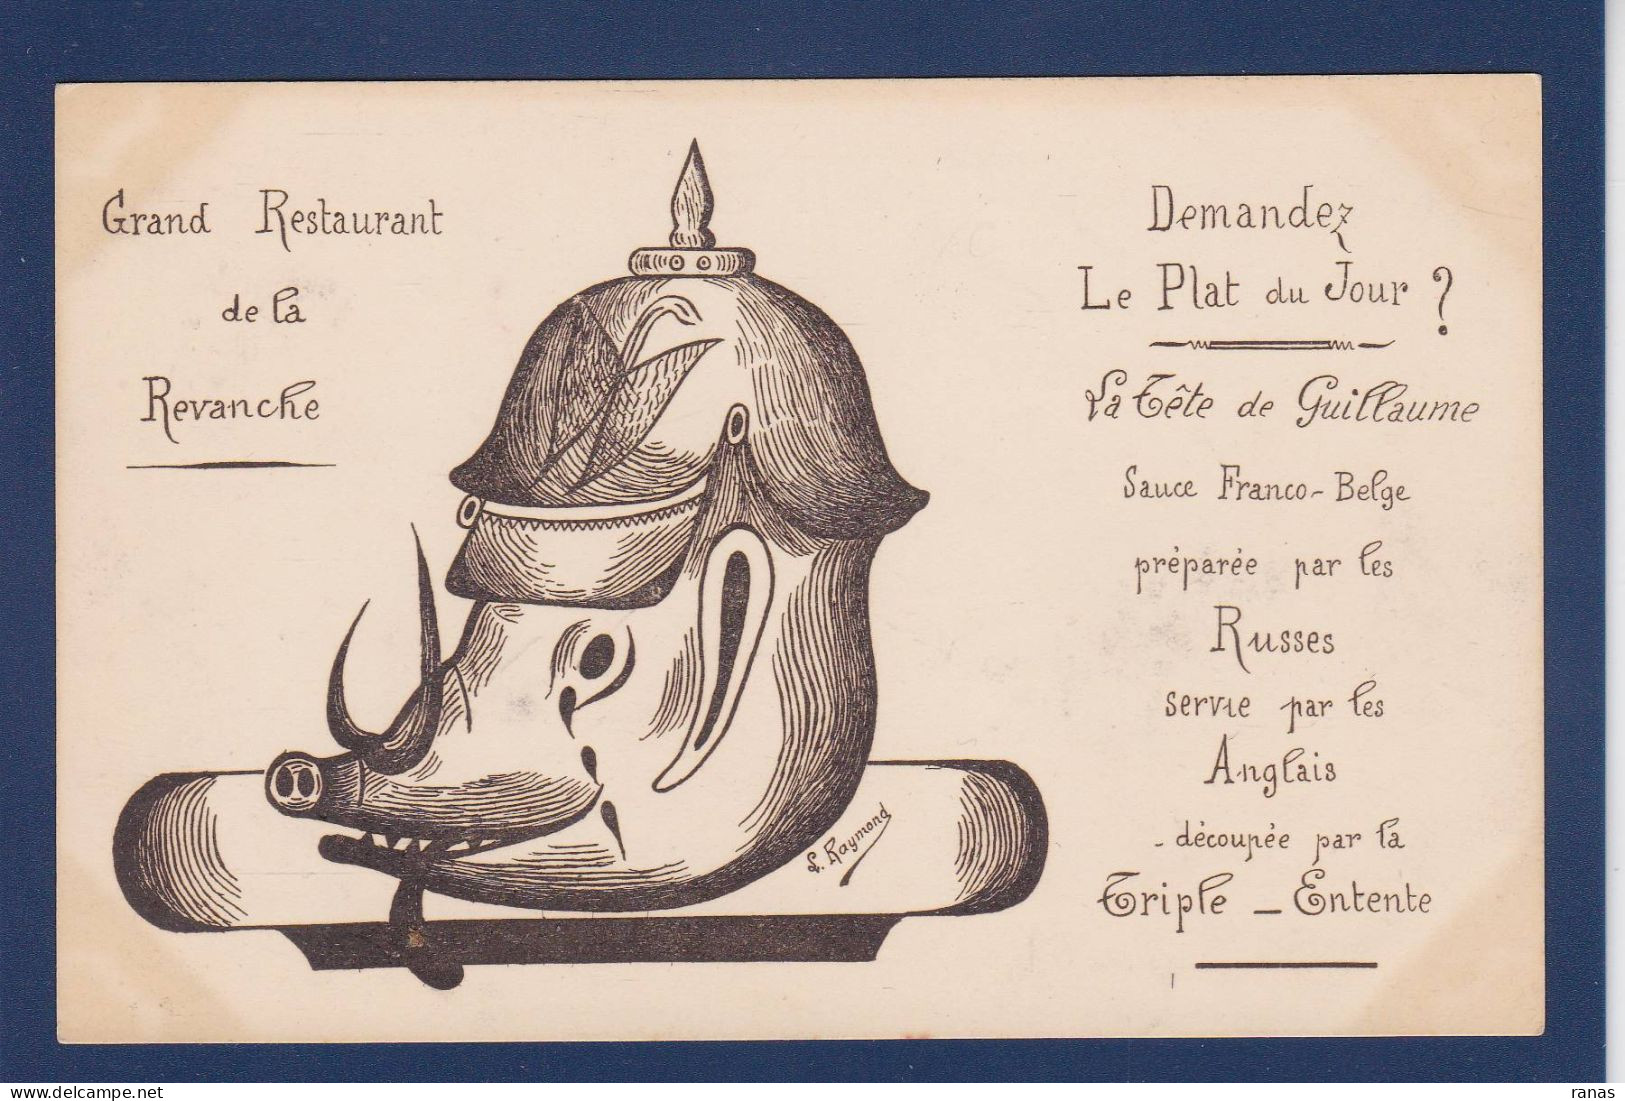 Grand Restaurant
de la
Revanche
Demandez
Le Plat du Jour ?
La Tête de Guillaume
Sauce Franco-Belge
préparée par les
Russes
servie par les
Anglais
- découpée par la
Triple - Entente
L. Raymond
ranas